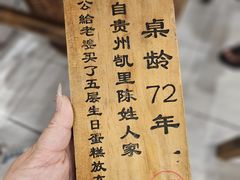 桌龄72年
自贵州凯里陈姓人家
公给老婆买了五层生日蛋糕放在